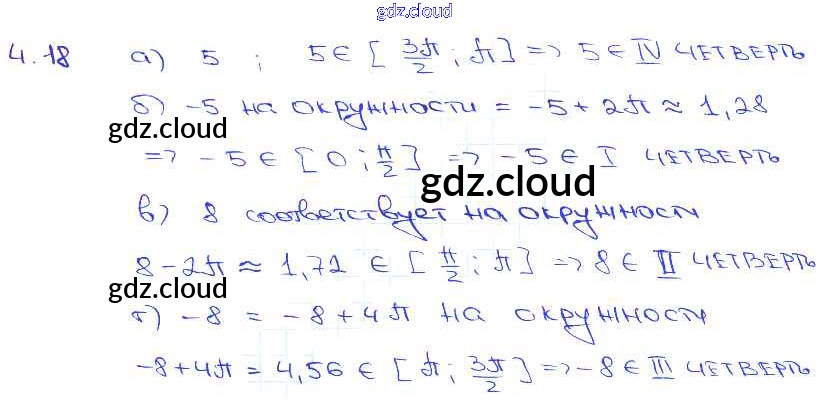 gdz.cloud
4.18 а) 5 ; 5 ∈ [3π/2 ; π] => 5 ∈ IV ЧЕТВЕРТЬ
б) -5 НА ОКРУЖНОСТИ = -5 + 2π ≈ 1,28
gdz.cloud
=> -5 ∈ [0 ; π/2] => -5 ∈ I ЧЕТВЕРТЬ
gdz.cloud
в) 8 соответствует НА ОКРУЖНОСТИ
8 - 2π ≈ 1,72 ∈ [π/2 ; π] => 8 ∈ II ЧЕТВЕРТЬ
gdz.cloud
г) -8 = -8 + 4π НА ОКРУЖНОСТИ
-8 + 4π = 4,56 ∈ [π ; 3π/2] => -8 ∈ III ЧЕТВЕРТЬ